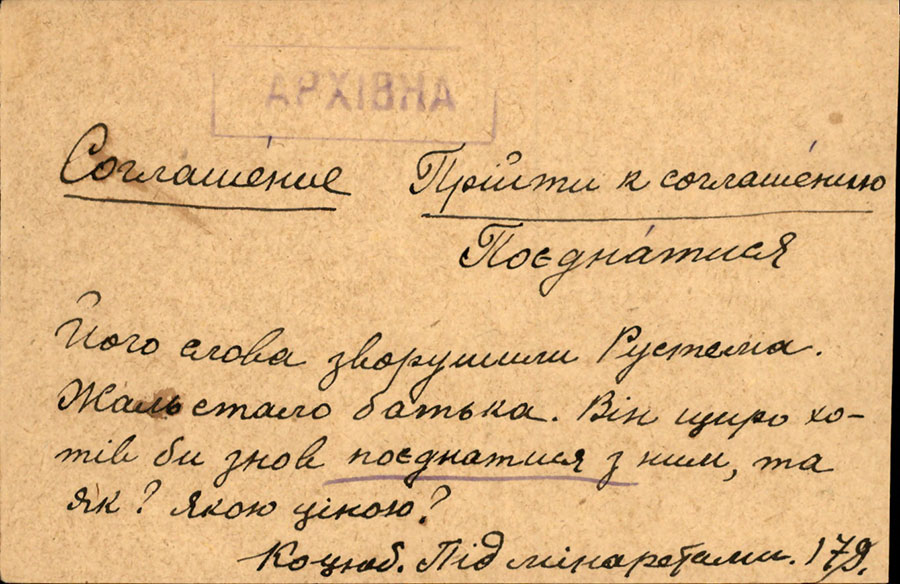 АРХІВНА
Соглаше́ние Прійти к соглаше́нию
Поєдна́тися
Його слова зворушили Рустема.
Жаль стало батька. Він щиро хо-
тів би знов поєднатися з ним, та
як? якою ціною?
Коцюб. Під мінаретами.